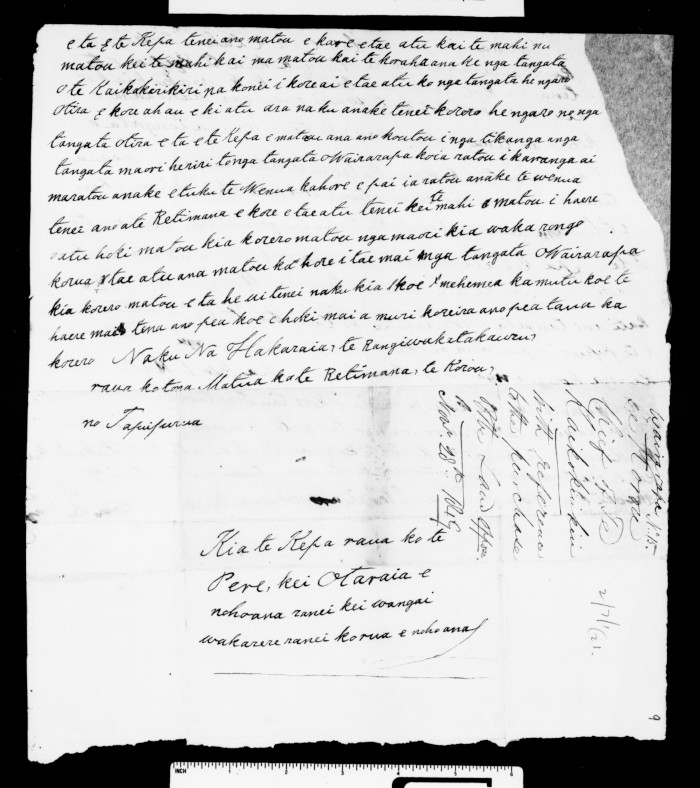 e ta e te Kepa tenei ano matou e kore e tae atu kai te mahi nu
matou kei te mahi kai ma matou kai te koraha ana ke nga tangata
o te Kaikokirikiri na konei i kore ai e tae atu ko nga tangata he ngaro
Otira e kore ahau e ki atu ara naku anake tenei korero he ngaro no nga
tangata otira e ta e te Kepa e matau ana ano koutou i nga tikanga anga
tangata maori he riri to nga tangata o Wairarapa koia ratou i karanga ai
ma ratou anake e tuku te Wenua kahore e pai ia ratou anake te wenua
tenei ano a te Retimana e kore e tae atu tenei kei te mahi e matou i haere
atu hoki matou kia korero matou nga maori kia waka rongo
korua tae atu ana matou ka hore i tae mai nga tangata o Wairarapa
kia korero matou e ta he ui tenei naku kia koe mehemea ka mutu koe te
haere mai tena ano pea koe e hoki mai a muri ko reira ano pea taua ka
korero Naku Na Hakaraia, te Rangiwakatakauru,
raua ko tona Matua ko te Retimana, te Korou,
no Tapupurua
Kia te Kepa raua ko te
Pere, kei Otaraia e
nohoana ranei kei wangai
wakarere ranei korua e nohoana
Wairarapa No. 15.
Chief
Kaikokirikiri
with reference
to the purchase
of the Land Offer
Nov. 28th 1849
2/2/121.
9
INCH 1 2 3 4 5 6